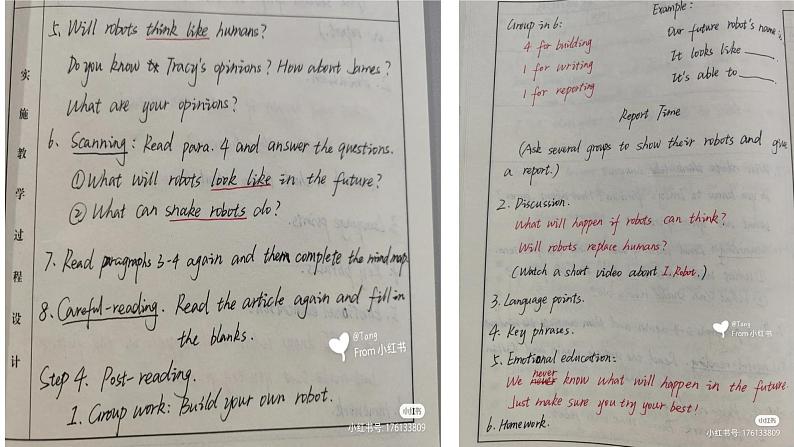 实施教学过程设计
5. Will robots think like humans?
Do you know Tracy's opinions? How about James?
What are your opinions?
6. Scanning: Read para. 4 and answer the questions.
①What will robots look like in the future?
② What can snake robots do?
7. Read paragraphs 3-4 again and them complete the mind map.
8. Careful-reading. Read the article again and fill in
the blanks.
@Tang
From 小红书
Step 4. Post-reading.
1. Group work: Build your own robot.
小红书
小红书号: 176133809
Group in 6:
4 for building
1 for writing
1 for reporting
Example:
Our future robot's name is
It looks like ____.
It's able to ____.
Report Time
(Ask several groups to show their robots and give
a report.)
2. Discussion.
What will happen if robots can think?
Will robots replace humans?
(Watch a short video about I, Robot.)
3. Language points.
4. Key phrases.
@Tang
From 小红书
5. Emotional education:
We never know what will happen in the future.
Just make sure you try your best!
6. Homework.
小红书
小红书号: 176133809